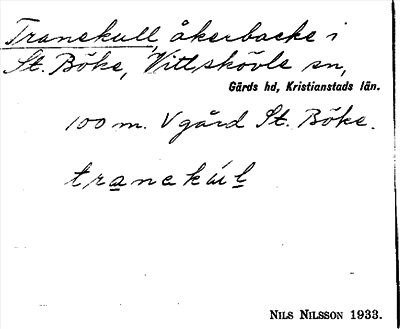 Tranekull, åkerbacke i
St. Böke, Vittskövle sn,
Gärds hd, Kristianstads län.
100 m. V gård St. Böke.
tranekúl
NILS NILSSON 1933.